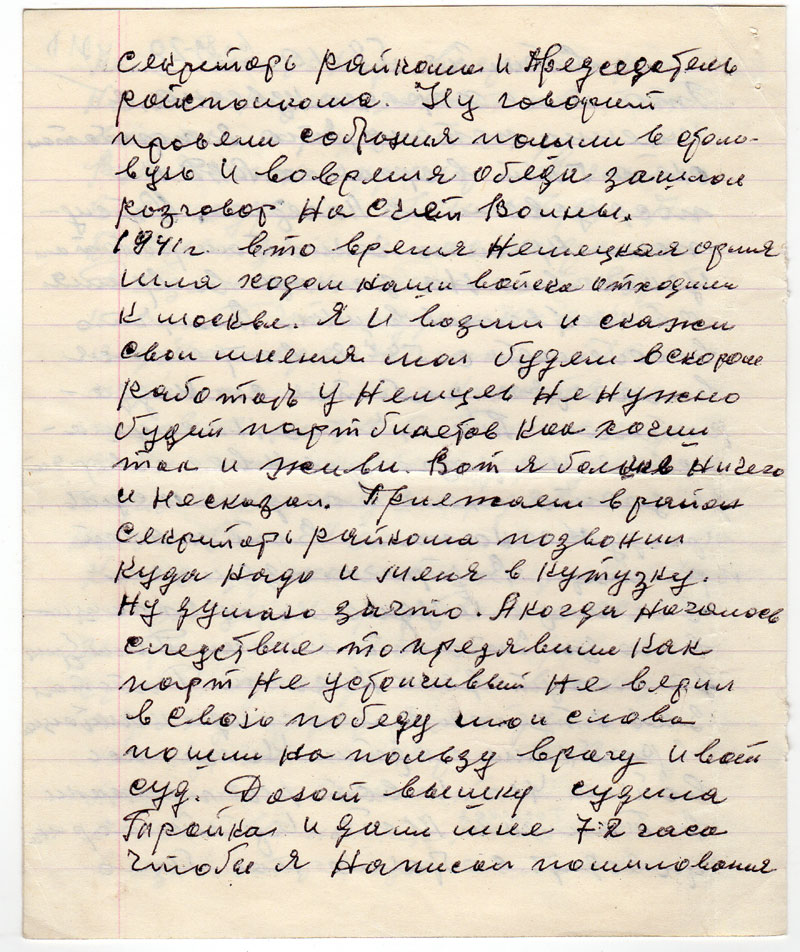 секритарь райкома и Председатель
райсполкома. Ну говорит
провели собрания пошли в столо-
вую и вовремя обеда зашлои
розговор на счет Воины.
1941 г. вто время Немецкая армия
шля ходом наши войска отходили
к москве. Я и возми и скажи
свои мнения мол будем вскором
работать у Немцев Ненужно
будет партбилетов как хочиш
так и живи. Вот я больше Ничего
и несказал. Приежаем в район
секритарь райкома позвонил
куда надо и меня в кутузку.
Ну думаю зачто. А когда началось
следствие то предявили как
парт Не устоичивый Не верил
в свою победу мои слова
пошли на пользу врагу и вот
суд. Дают вышку судила
Тройка и дали мне 72 часа
чтобы я Написал помилования